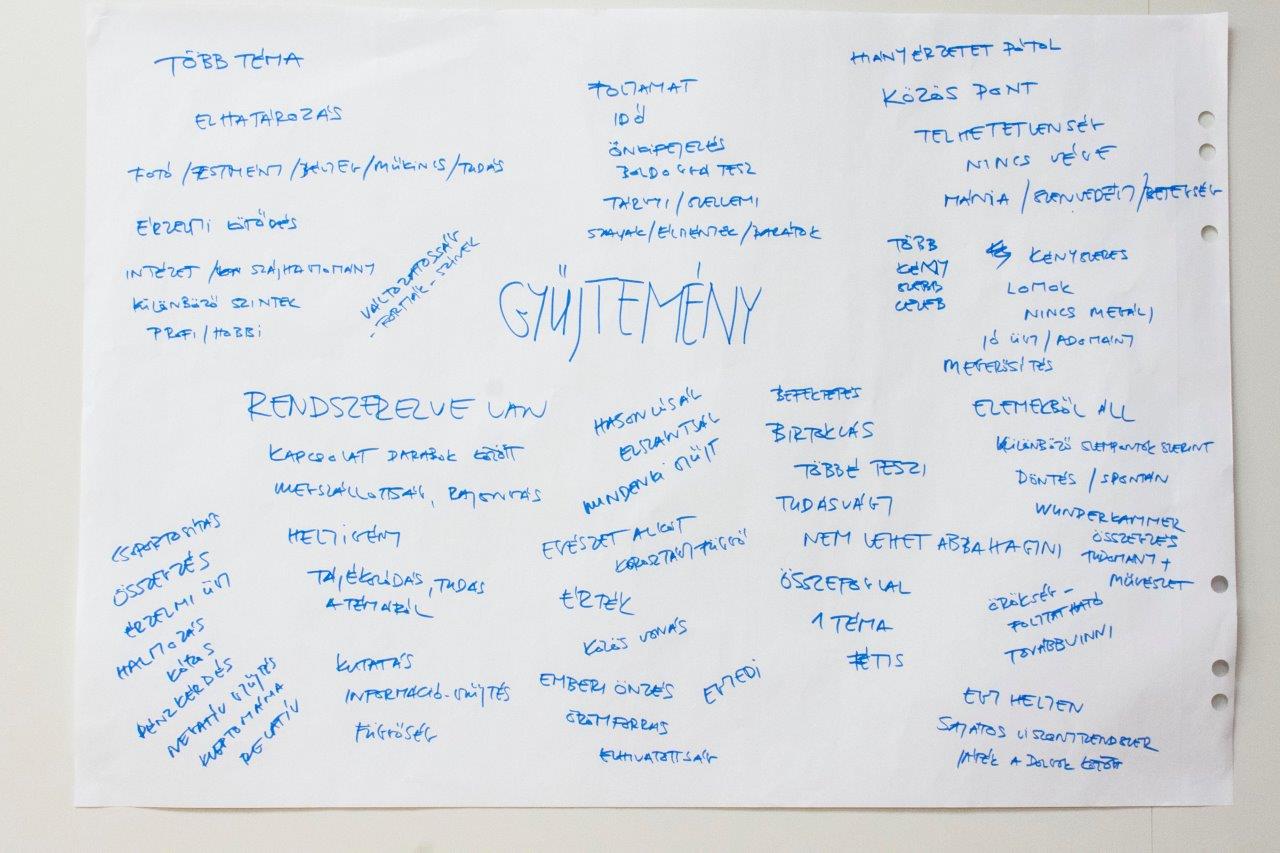 TÖBB TÉMA
ELHATÁROZÁS
FOTÓ / FESTMÉNY / BÉLYEG / MŰKINCS / TUDÁS
ÉRZELMI KÖTŐDÉS
INTÉZET / SZÁJHAGYOMÁNY
KÜLÖNBÖZŐ SZINTEK
PROFI / HOBBI
VÁLTOZATOSSÁG
- FORMÁK - SZÍNEK
FOLYAMAT
IDŐ
ÖNKIFEJEZÉS
BOLDOGGÁ TESZ
TÁRGYI / SZELLEMI
SZAVAK / ÉLMÉNYEK / BARÁTOK
HIÁNYÉRZETET PÓTOL
KÖZÖS PONT
TELHETETLENSÉG
NINCS VÉGE
MÁNIA / SZENVEDÉLY / BETEGSÉG
TÖBB
KÉMY
SZEBB
CELEB
KÉNYSZERES
LOMOK
NINCS MEGÁLJ
JÓ ÜGY / ADOMÁNY
MEGERŐSÍTÉS
GYŰJTEMÉNY
RENDSZEREZVE VAN
KAPCSOLAT DARABOK KÖZÖTT
MEGSZÁLLOTTSÁG, RAJONGÁS
HELYIGÉNY
TÁJÉKOZÓDÁS, TUDÁS
A TÉMÁRÓL
KUTATÁS
INFORMÁCIÓ-GYŰJTÉS
FÜGGŐSÉG
CSOPORTOSÍTÁS
ÖSSZEGZÉS
ÉRZELMI ÜGY
HALMOZÁS
KÓTÁS
PÉNZKÉRDÉS
NEGATÍV GYŰJTÉS
KLEPTOMÁNIA
RELATÍV
HASONLÓSÁG
ELSZÁNTSÁG
MINDENKI GYŰJT
EGÉSZET ALKOT
KOROSZTÁLY-FÜGGŐ
ÉRTÉK
KÖZÖS VONÁS
EMBERI ÖNZÉS
EGYEDI
ÖRÖMFORRÁS
ELHIVATOTTSÁG
BEFEKTETÉS
BIRTOKLÁS
TÖBBÉ TESZI
TUDÁSVÁGY
NEM LEHET ABBAHAGYNI
ÖSSZEFOGLAL
1 TÉMA
FÉTIS
ELEMEKBŐL ÁLL
KÜLÖNBÖZŐ SZEMPONTOK SZERINT
DÖNTÉS / SPONTÁN
WUNDERKAMMER
ÖSSZEGZÉS
TUDOMÁNY +
MŰVÉSZET
ÖRÖKSÉG -
FOLYTATHATÓ
TOVÁBBVINNI
EGY HELYEN
SAJÁTOS VISZONYRENDSZER
JÁTÉK A DOLGOK KÖZÖTT